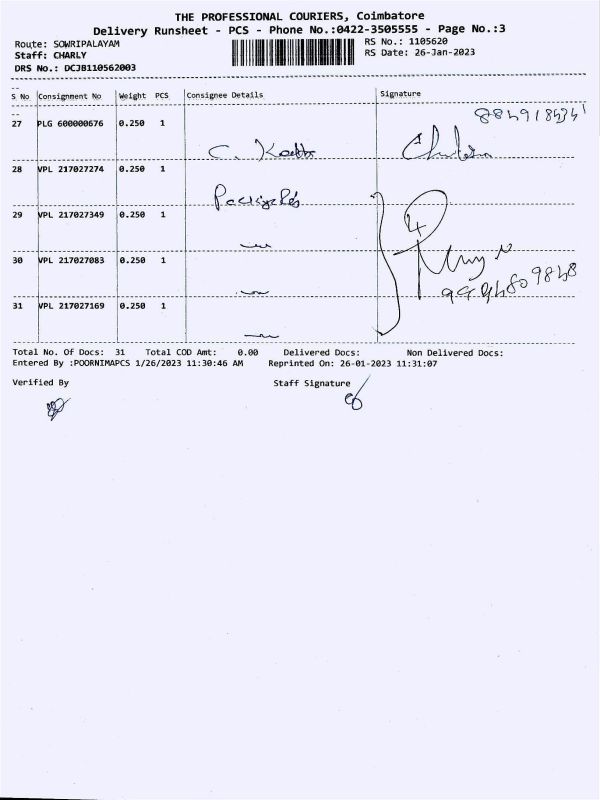 THE PROFESSIONAL COURIERS, Coimbatore
Delivery Runsheet - PCS - Phone No.:0422-3505555 - Page No.:3
Route: SOWRIPALAYAM
Staff: CHARLY
DRS No.: DCJB110562003
RS No.: 1105620
RS Date: 26-Jan-2023
S No Consignment No Weight PCS Consignee Details Signature
27 PLG 600000676 0.250 1
28 VPL 217027274 0.250 1
29 VPL 217027349 0.250 1
30 VPL 217027083 0.250 1
31 VPL 217027169 0.250 1
Total No. Of Docs: 31 Total COD Amt: 0.00 Delivered Docs: Non Delivered Docs:
Entered By :POORNIMAPCS 1/26/2023 11:30:46 AM Reprinted On: 26-01-2023 11:31:07
Verified By Staff Signature